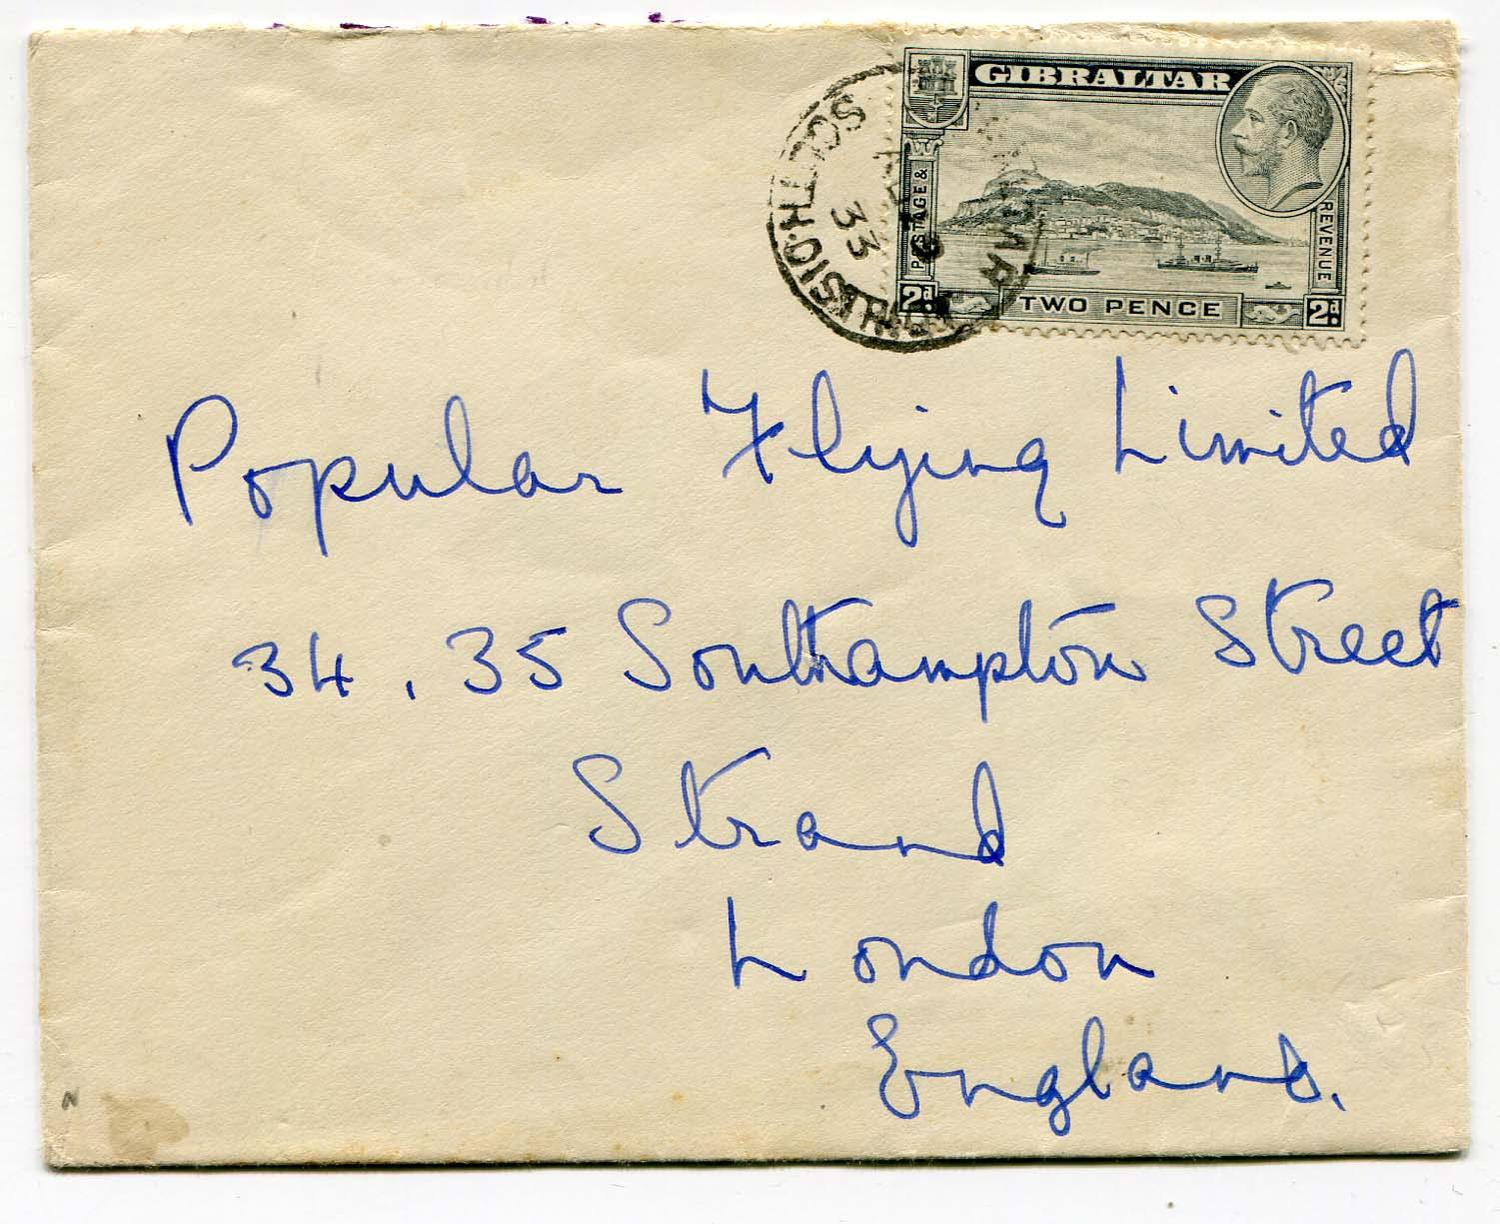 GIBRALTAR
POSTAGE &
REVENUE
2d.
TWO PENCE
2d.
SOUTH. DIST
33
Popular Flying Limited
34, 35 Southampton Street
Strand
London
England.